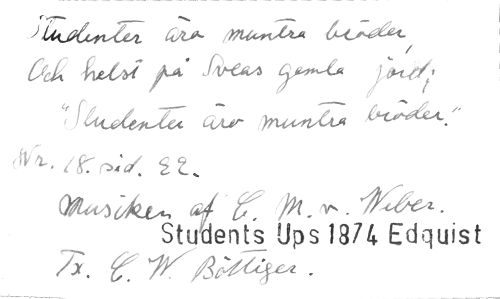 Studenter äro muntra bröder,
Och helst på Sveas gamla jord;
"Studenter äro muntra bröder."
Nr. 18. sid. 22.
Musiken af C. M. v. Weber.
Students Ups 1874 Edquist
Tx. C. W. Böttiger.